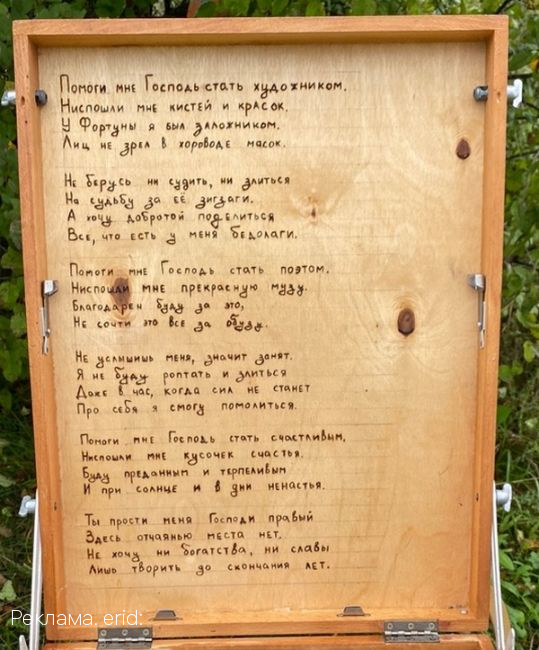 Помоги мне Господь стать художником.
Ниспошли мне кистей и красок.
У Фортуны я был заложником.
Лиц не зрел в хороводе масок.
Не берусь ни судить, ни злиться
На судьбу за её зигзаги.
А хочу добротой поделиться
Все, что есть у меня бедолаги.
Помоги мне Господь стать поэтом.
Ниспошли мне прекрасную музу.
Благодарен буду за это,
Не сочти это все за обузу.
Не услышишь меня, значит занят.
Я не буду роптать и злиться
Даже в час, когда сил не станет
Про себя я смогу помолиться.
Помоги мне Господь стать счастливым,
Ниспошли мне кусочек счастья.
Буду преданным и терпеливым
И при солнце и в дни ненастья.
Ты прости меня Господи правый
Здесь отчаянью места нет.
Не хочу ни богатства, ни славы
Лишь творить до скончания лет.
Реклама. erid: